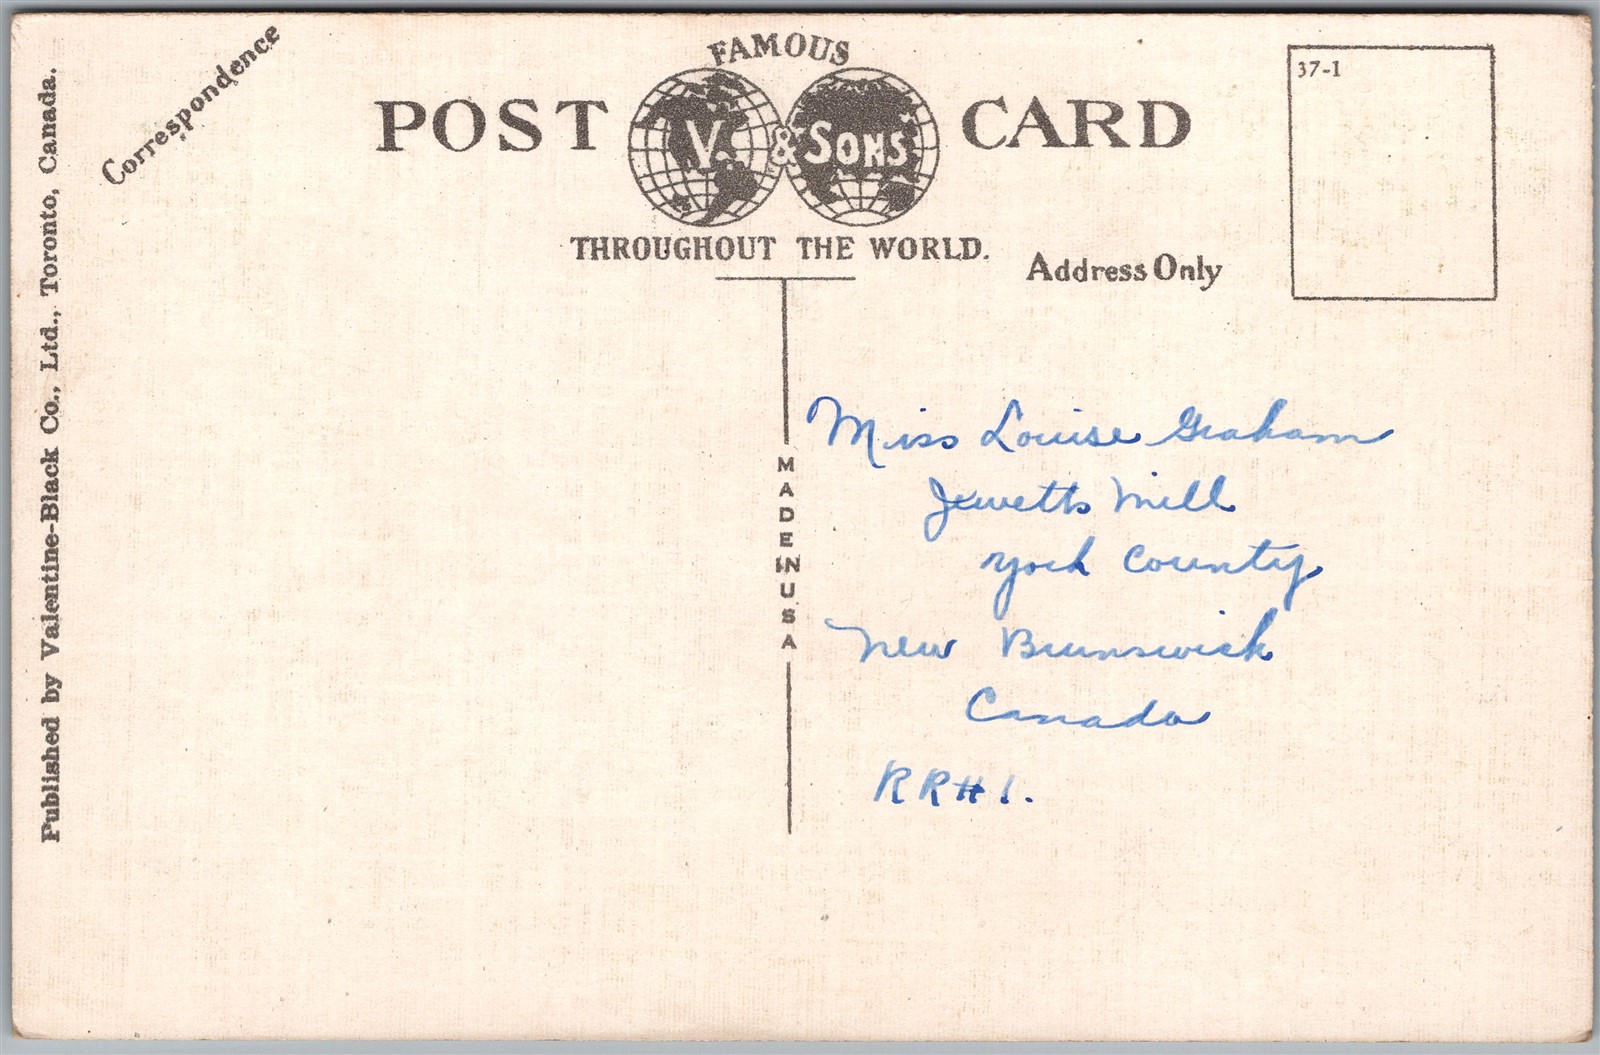 Correspondence
Published by Valentine-Black Co., Ltd., Toronto, Canada.
FAMOUS
POST V. & SONS CARD
THROUGHOUT THE WORLD.
37-1
Address Only
MADE IN USA
Miss Louise Graham
Jewetts Mill
York County
New Brunswick
Canada
RR#1.